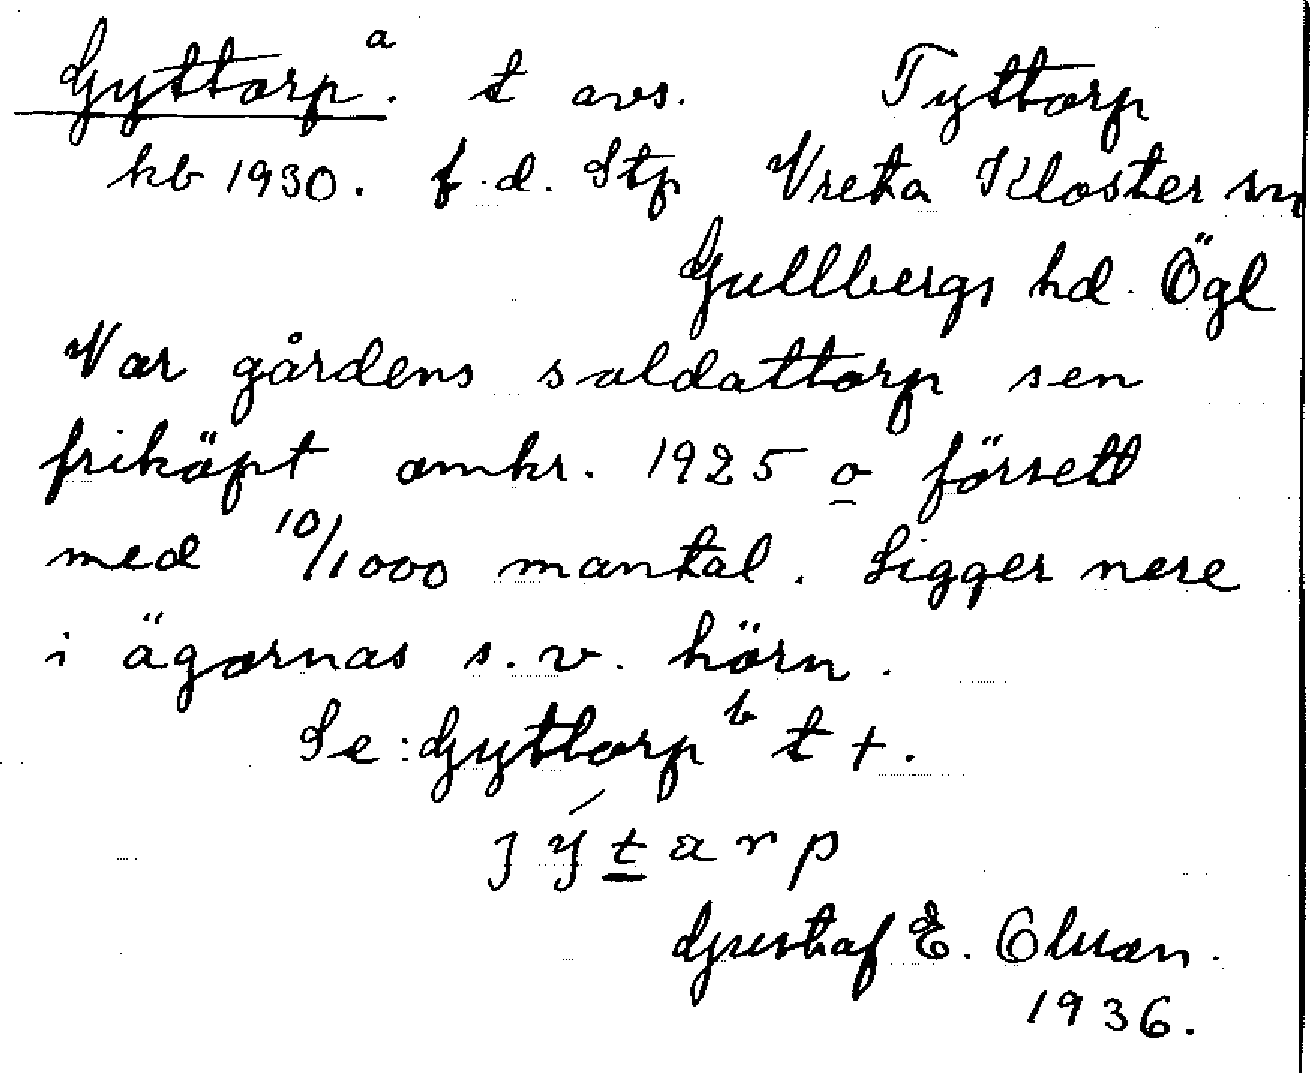 Gyttorp a. t avs. Tyttorp
kb 1930. f.d. Stp Vreta Kloster sn
Gullbergs hd. Ögl
Var gårdens soldattorp sen
friköpt omkr. 1925 o försett
med 10/1000 mantal. Ligger nere
i ägornas s.v. hörn.
Se: Gyttorp b t +.
j ý t a r p
Gustaf E. Olsson.
1936.